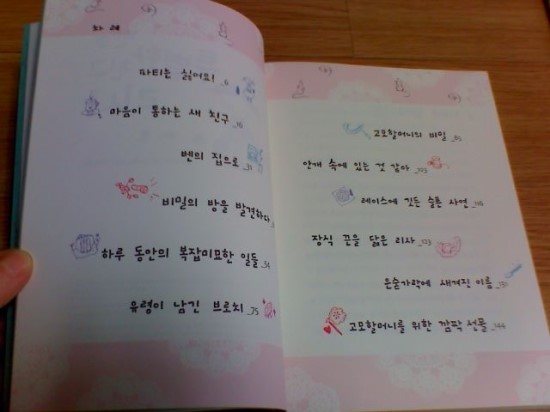 차 례
파티는 싫어요!
마음이 통하는 새 친구 _16
벤의 집으로 _31
비밀의 방을 발견하다
하루 동안의 복잡미묘한 일들 _54
유령이 남긴 브로치 _75
고모할머니의 비밀 _85
안개 속에 있는 것 같아 _103
레이스에 깃든 슬픈 사연
장식 끈을 닮은 리사 _123
은숟가락에 새겨진 이름
고모할머니를 위한 깜짝 선물 _144